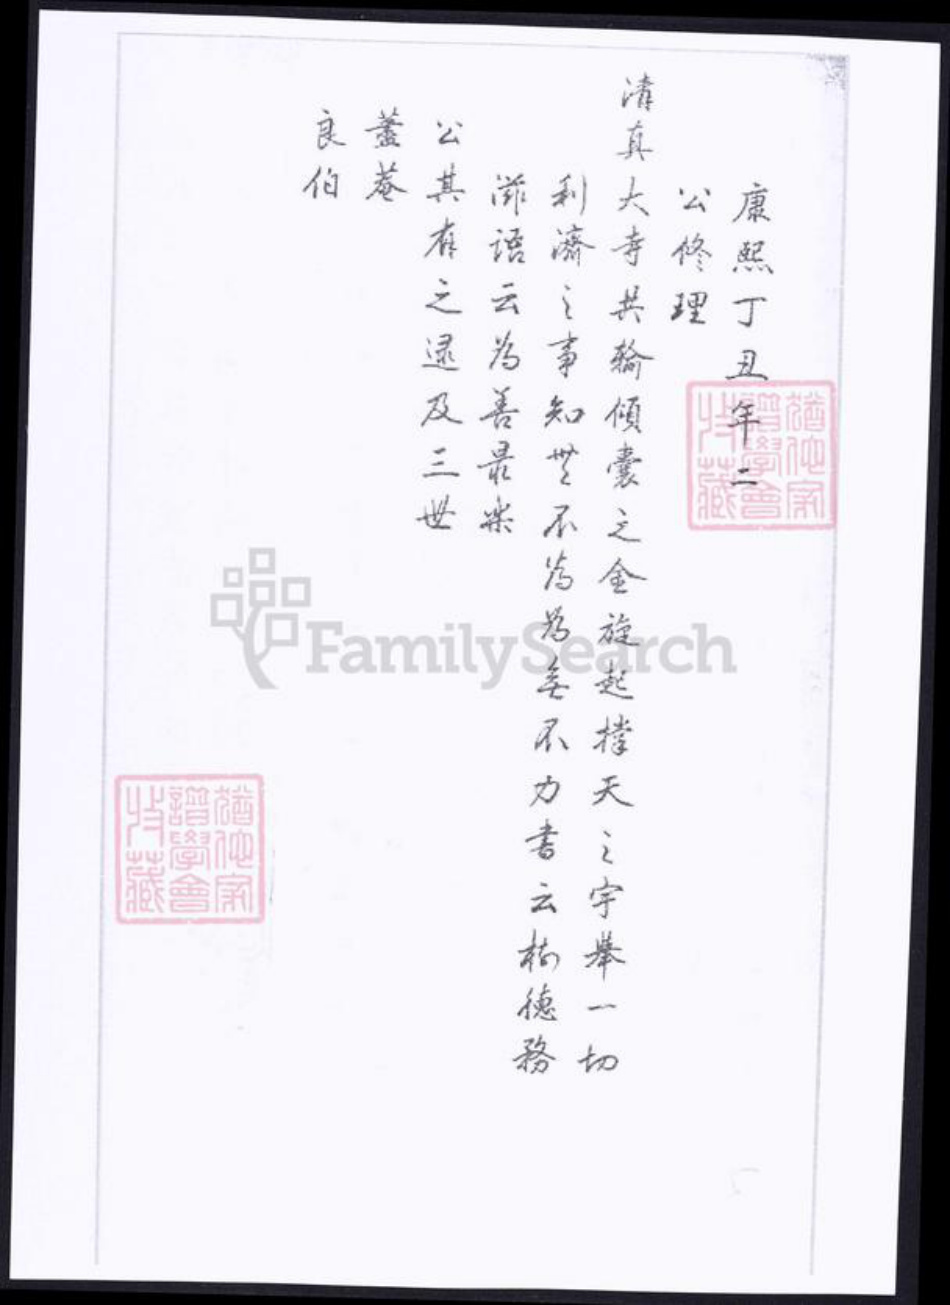 康熙丁丑年二
公修理
清真大寺共輸傾囊之金旋起撑天之宇舉一切
利濟之事知無不為為無不力書云樹德務
滋語云為善最樂
公其有之逮及三世
蓋菴
良伯
猶他家譜學會收藏
猶他家譜學會收藏
FamilySearch